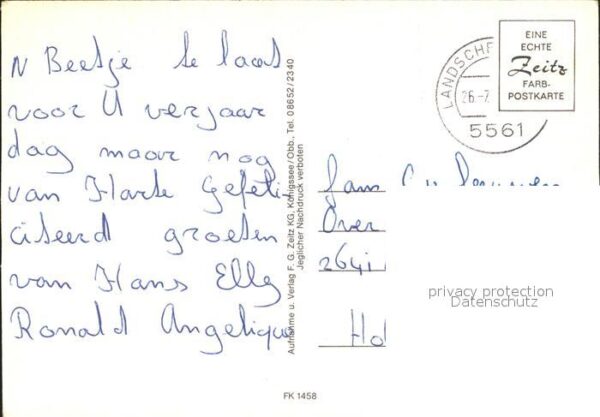 N Beetje te laat
voor U verjaar
dag maar nog
van Harte Gefeli-
citeerd groeten
van Hans Elly
Ronald Angelique
Aufnahme u. Verlag F. G. Zeitz KG, Königssee/Obb., Tel. 08652/2340
Jeglicher Nachdruck verboten
LANDSCH
26.-7.
5561
EINE
ECHTE
Zeitz
FARB-
POSTKARTE
Over
264
Ho
privacy protection
Datenschutz
FK 1458